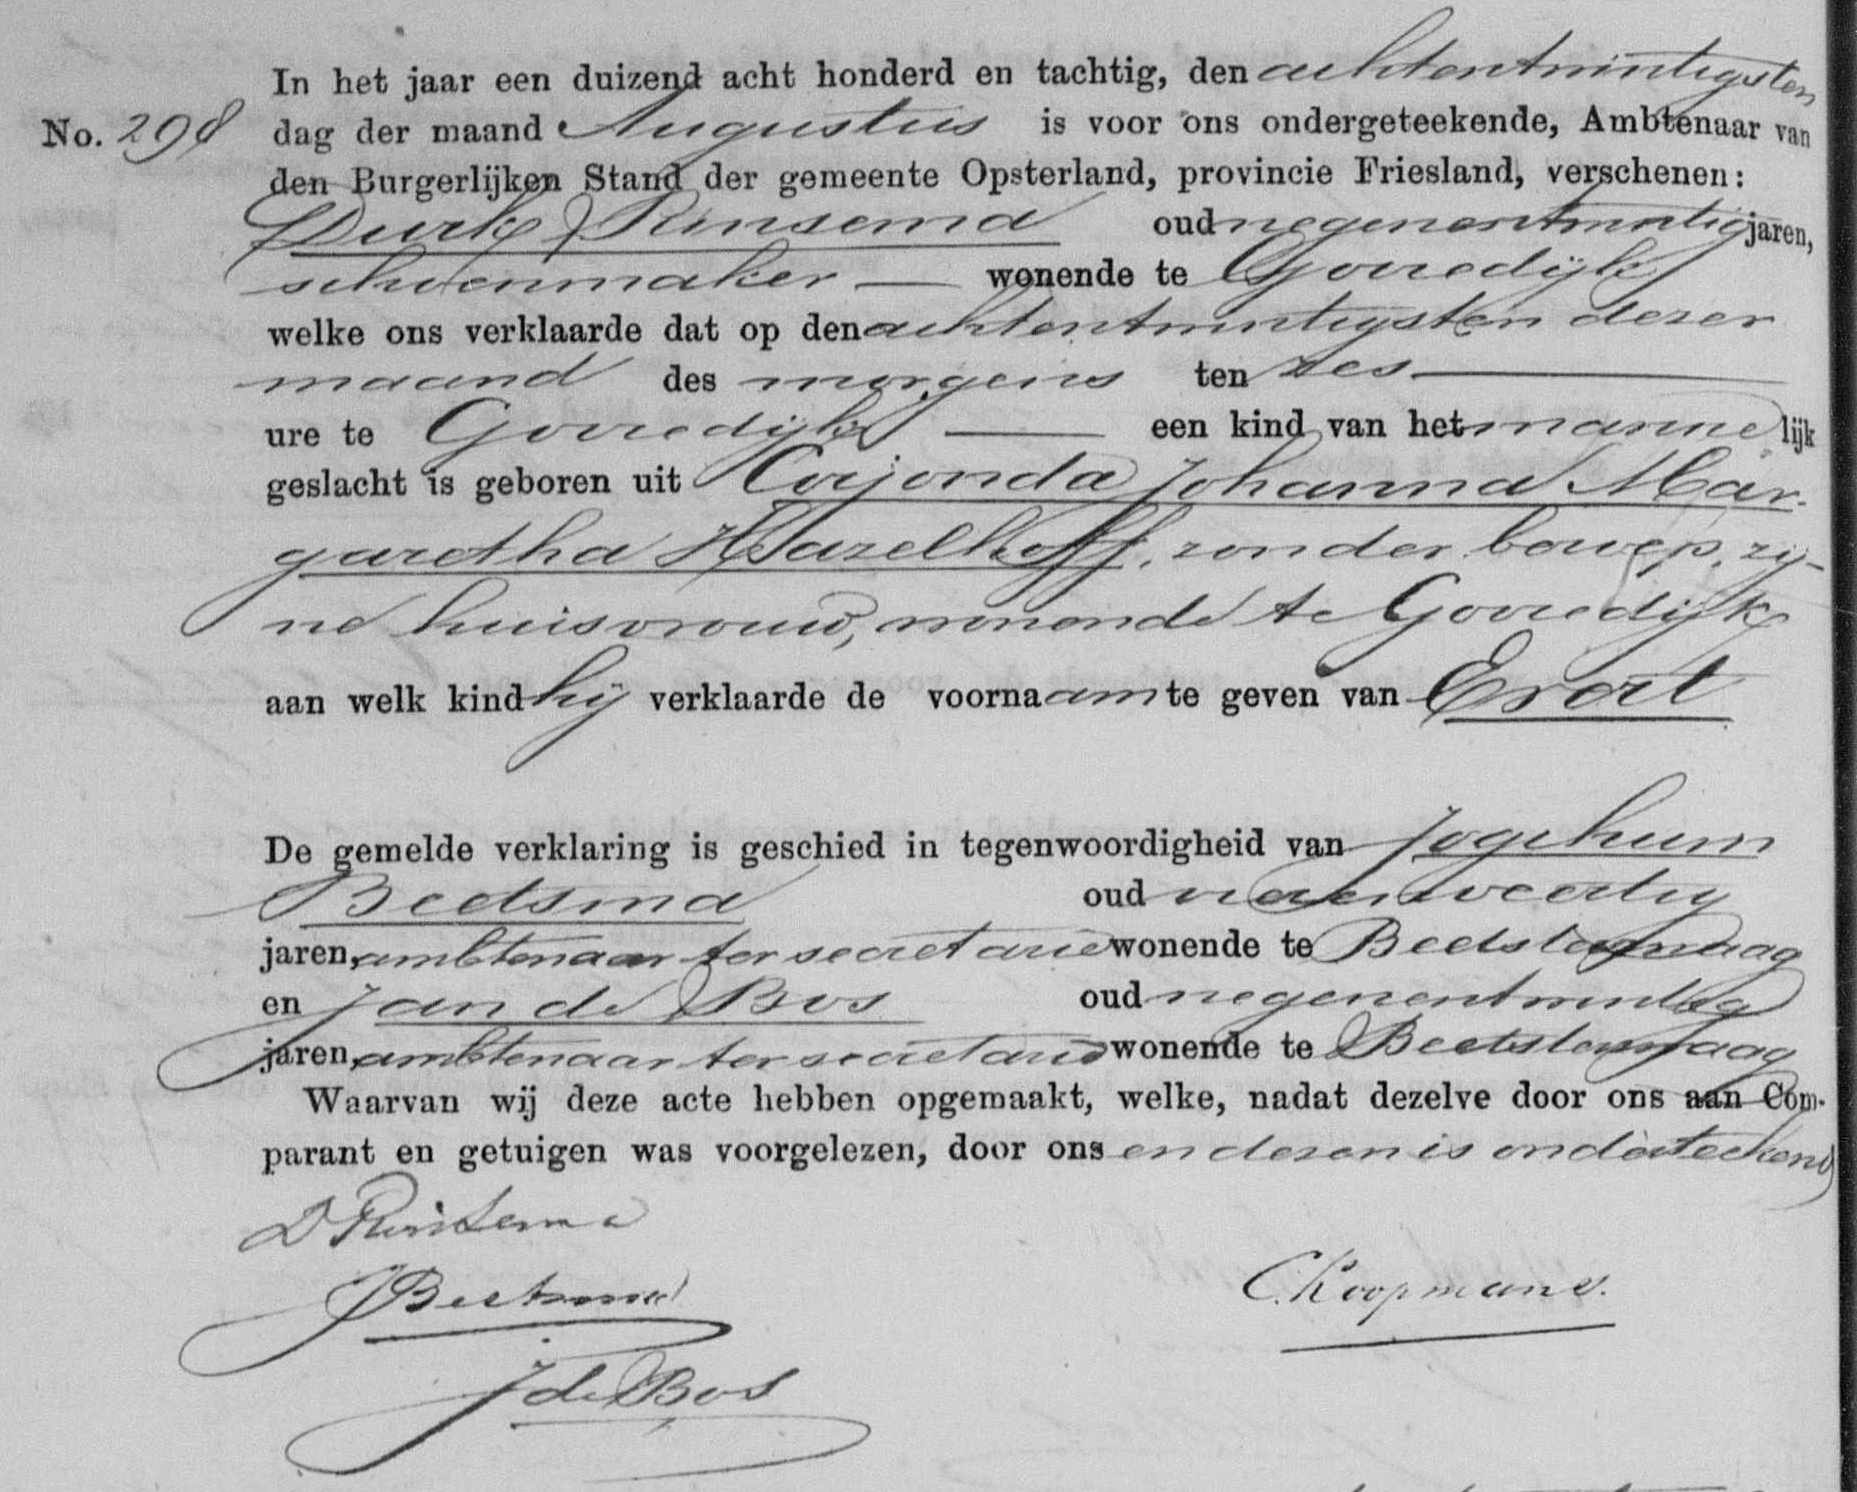 In het jaar een duizend acht honderd en tachtig, den achtentwintigsten
No. 298 dag der maand Augustus is voor ons ondergeteekende, Ambtenaar van
den Burgerlijken Stand der gemeente Opsterland, provincie Friesland, verschenen:
Durk Rinsema oud negenentwintig jaren,
schoenmaker — wonende te Gorredijk
welke ons verklaarde dat op den achtentwintigsten dezer
maand des morgens ten zes —
ure te Gorredijk — een kind van het mannelijk
geslacht is geboren uit Corjonda Johanna Mar-
garetha Hazelhoff, zonder beroep, zij-
ne huisvrouw, wonende te Gorredijk
aan welk kind hij verklaarde de voornaam te geven van Evert
De gemelde verklaring is geschied in tegenwoordigheid van Jogchum
Beetsma oud veertig
jaren, ambtenaar ter secretarie wonende te Beetsterzwaag
en Jan de Bos oud negenentwintig
jaren, ambtenaar ter secretarie wonende te Beetsterzwaag
Waarvan wij deze acte hebben opgemaakt, welke, nadat dezelve door ons aan Com-
parant en getuigen was voorgelezen, door ons en dezen is onderteekend
D Rinsema
JBeetsma
C. Koopmans.
J de Bos